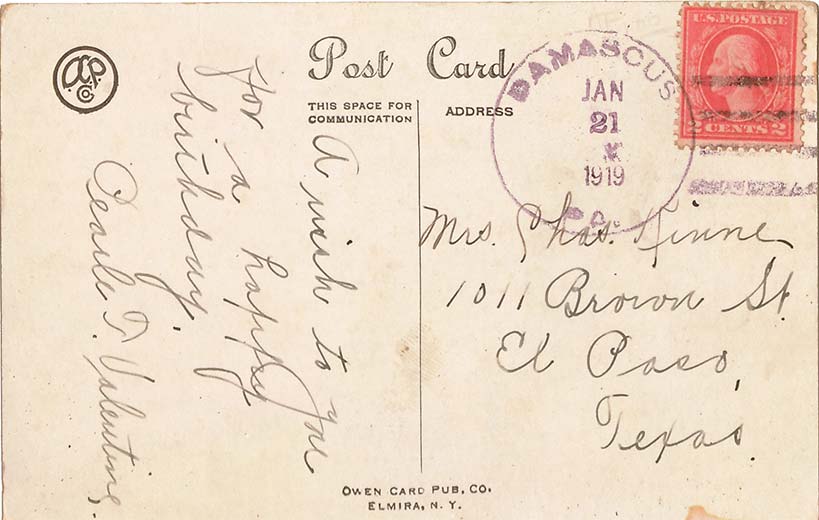 a.p. Co.
Post Card
THIS SPACE FOR
COMMUNICATION
ADDRESS
DAMASCUS
JAN
21
1919
PA.
U.S. POSTAGE
2 CENTS 2
A wish to you
for a happy
birthday.
Pearle T. Valentine.
Mrs. Chas. Kinne
1011 Brown St
El Paso,
Texas.
OWEN CARD PUB. CO.
ELMIRA, N. Y.